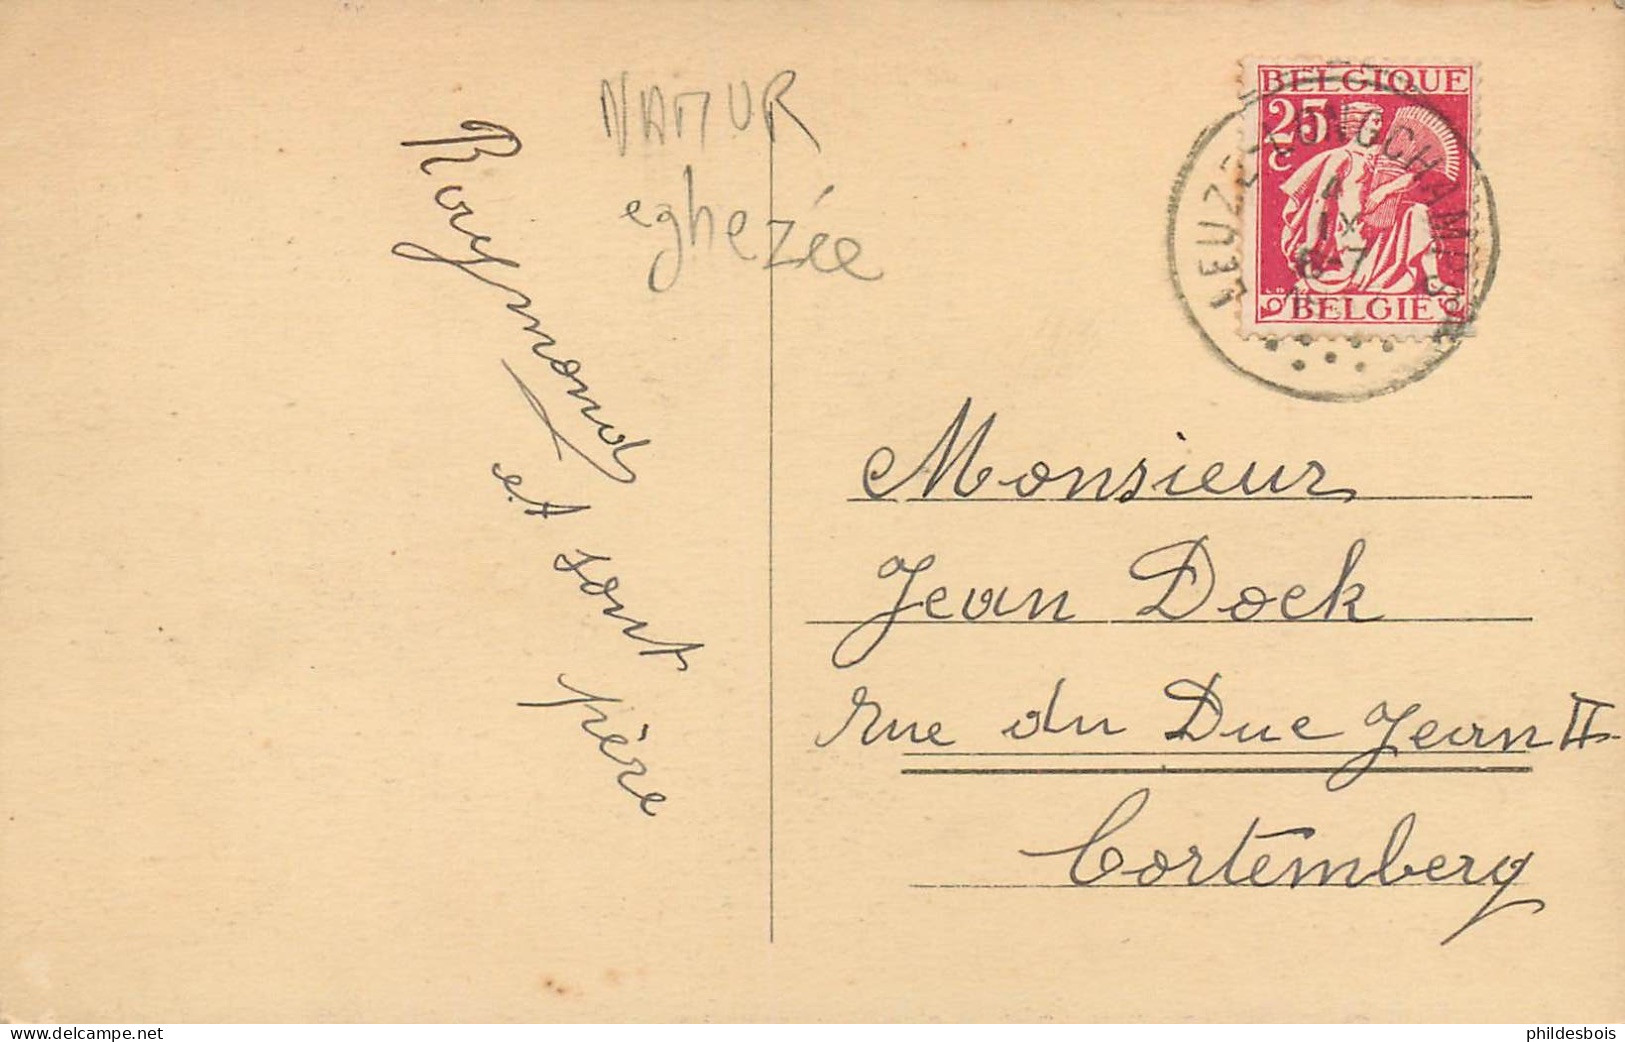 NAMUR
eghezée
Raymond
et sont père
BELGIQUE
25
C
BELGIË
LEUZE-LONGCHAMPS
IX
6-7
Monsieur
Jean Dock
rue du Duc Jean II
Cortemberg
Voir sur delcampe.net
phildesbois